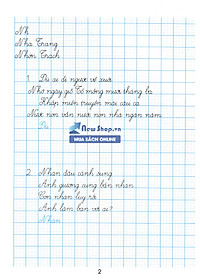 Nh
Nha Trang
Nhơn Trạch
1. Dù ai đi ngược về xuôi
Nhớ ngày giỗ Tổ mồng mười tháng ba
Khắp miền truyền mãi câu ca
Nước non vẫn nước non nhà ngàn năm
Dù
NewShop.vn
MUA SÁCH ONLINE
2. Nhạn đậu cành sung
Ánh gương cung bắn nhạn
Con nhạn luỵ rồi
Anh làm bạn với ai?
Nhạn
2